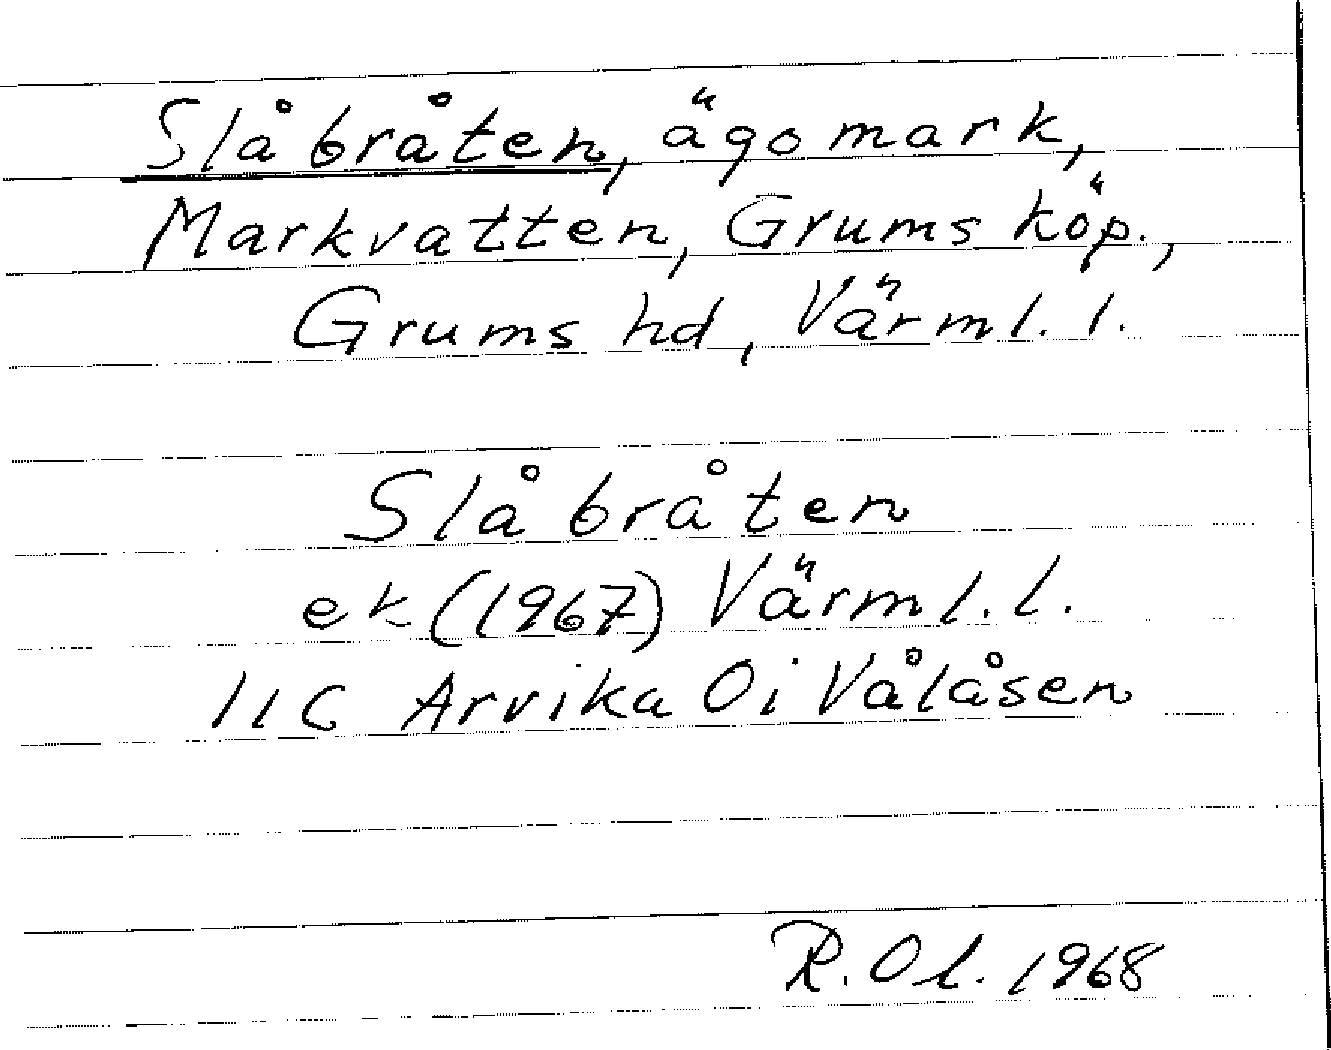 Slåbråten, ägomark,
Markvatten, Grums köp.,
Grums hd, Värml. l.
Slåbråten
ek (1967) Värml. l.
11C Arvika 0i Vålåsen
R. Ol. 1968